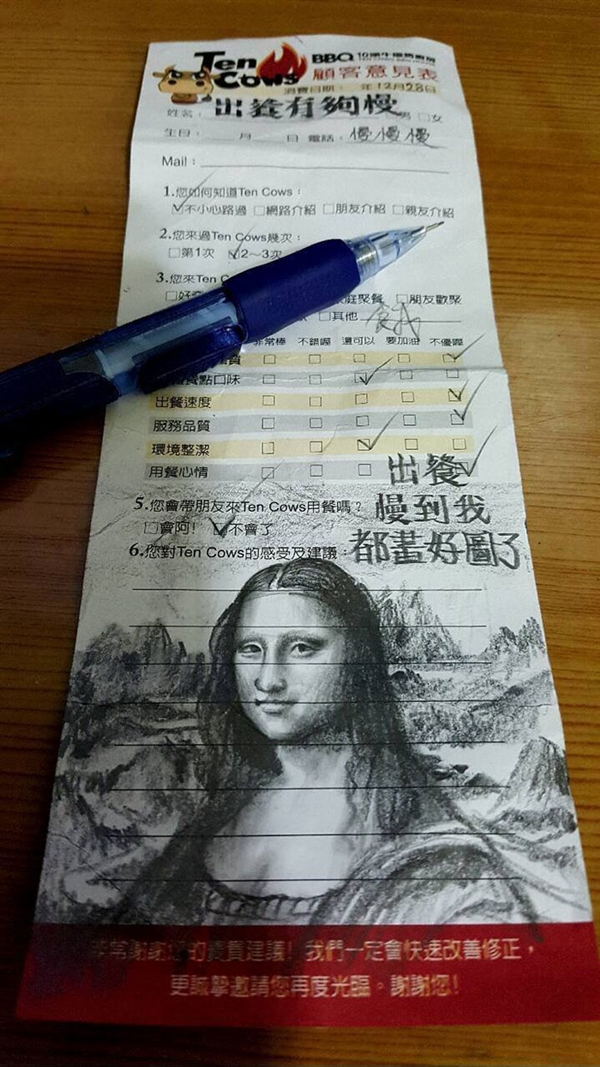 Ten Cows
BBQ 10頭牛
顧客意見表
消費日期： 年12月28日
姓名：出餐有夠慢 男 □女
生日： 月 日 電話：慢慢慢
Mail：
1.您如何知道Ten Cows：
☑不小心路過 □網路介紹 □朋友介紹 □親友介紹
2.您來過Ten Cows幾次：
□第1次 ☑2～3次
3.您來Ten C
□好奇 庭聚餐 □朋友歡聚
□其他
非常棒 不錯喔 還可以 要加油 不優喔
餐點口味
出餐速度
服務品質
環境整潔
用餐心情
出餐
慢到我
都畫好圖了
5.您會帶朋友來Ten Cows用餐嗎？
□會阿! ☑不會了
6.您對Ten Cows的感受及建議：
非常謝謝您的寶貴建議! 我們一定會快速改善修正，
更誠摯邀請您再度光臨。謝謝您!